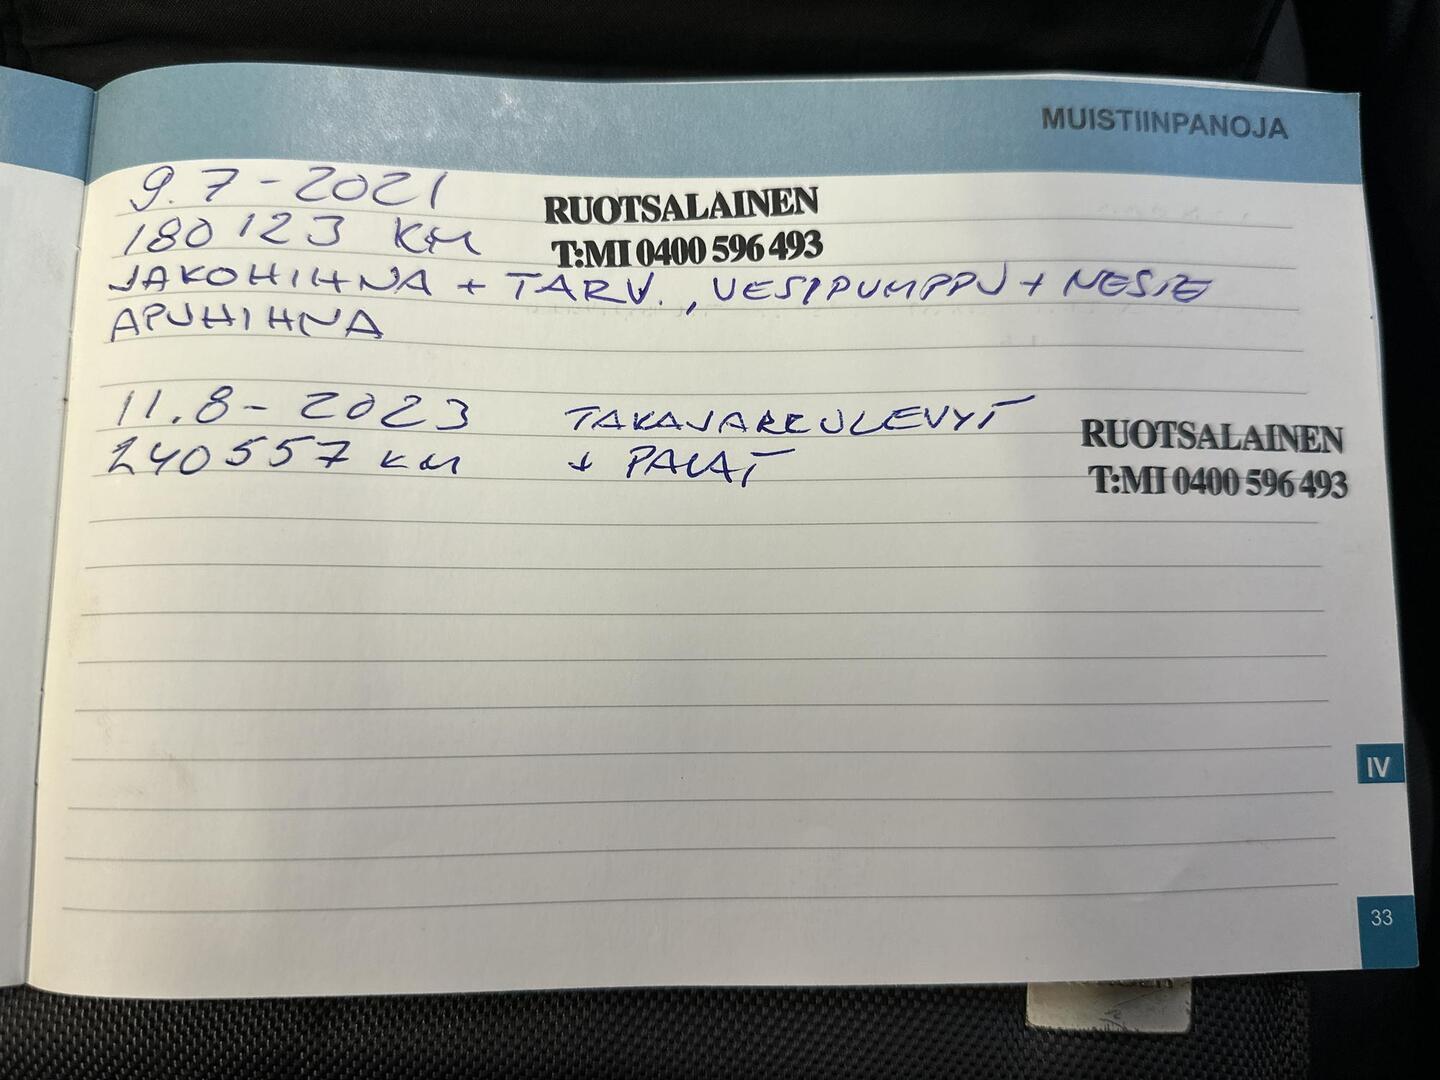 MUISTIINPANOJA
9.7-2021
RUOTSALAINEN
180123 KM
T:MI 0400 596 493
JAKOHIHNA + TARV., VESIPUMPPU + NESTE
APUHIHNA
11.8-2023 TAKAJARRULEVYT
RUOTSALAINEN
240557 KM + PALAT
T:MI 0400 596 493
IV
33